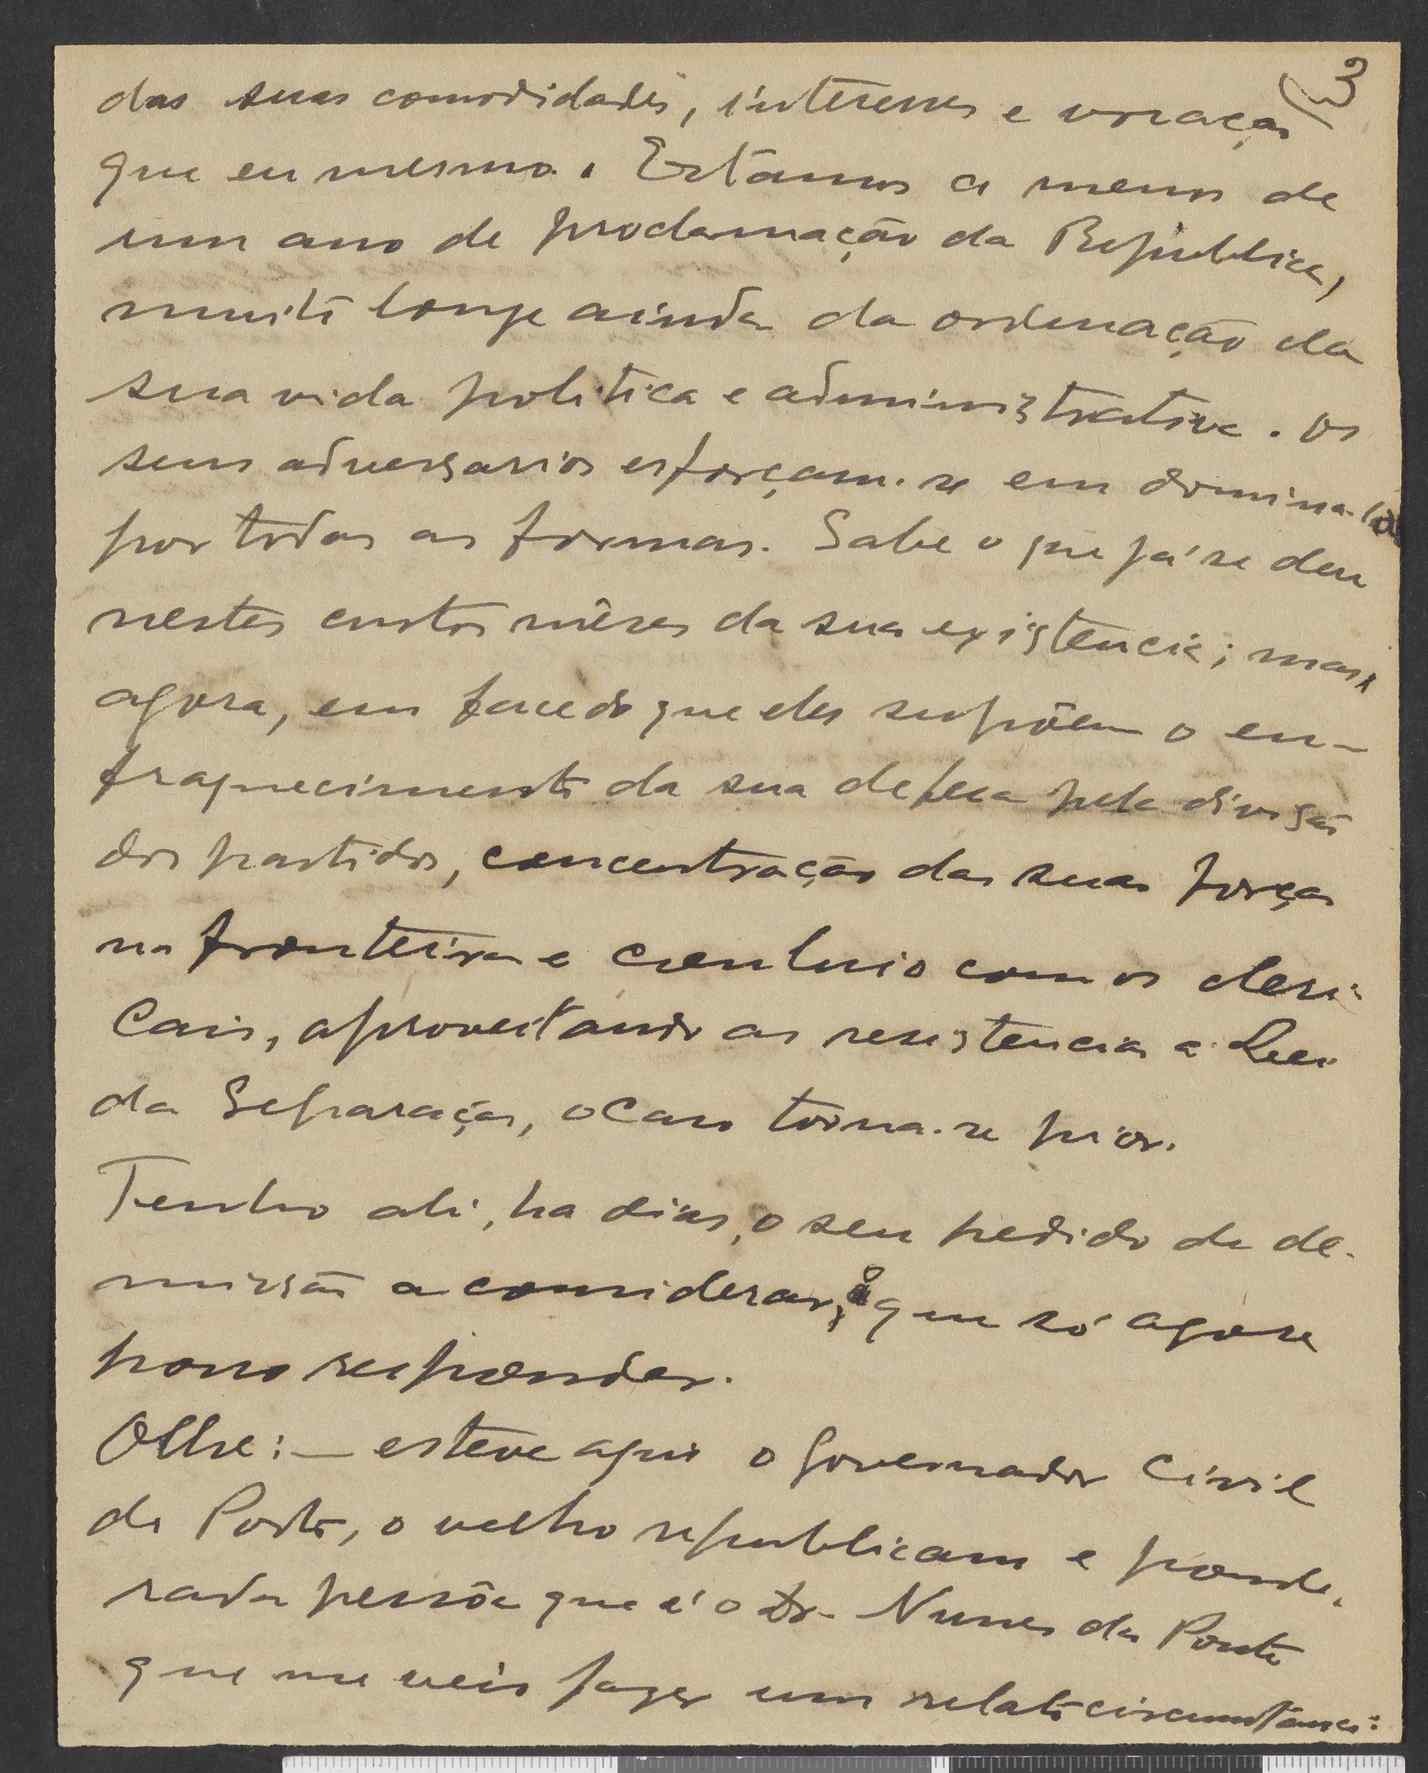 3
das suas comodidades, interesses e vocação
que eu mesmo. Estâmos a menos de
um ano de proclamação da Republica,
muito longe ainda da ordenação da
sua vida politica e administrativa. Os
seus adversarios esforçam-se em domina-la
por todas as formas. Sabe o que já se deu
nestes curtos mêses da sua existencia; mas,
agora, em face do que eles supõem o en-
fraquecimento da sua defesa pela divisão
dos partidos, concentração das suas forças
na fronteira e conluio com os cleri-
cais, aproveitando as resistencias a Lei
da Separação, o caso torna-se pior.
Tenho ali, ha dias, o seu pedido de de-
missão a considerar, a que só agora
posso responder.
Olhe: — esteve aqui o Governador Civil
do Porto, o velho republicano e ponde-
rada pessôa que é o Dr. Nunes da Ponte
que me veio fazer um relato circunstanci-